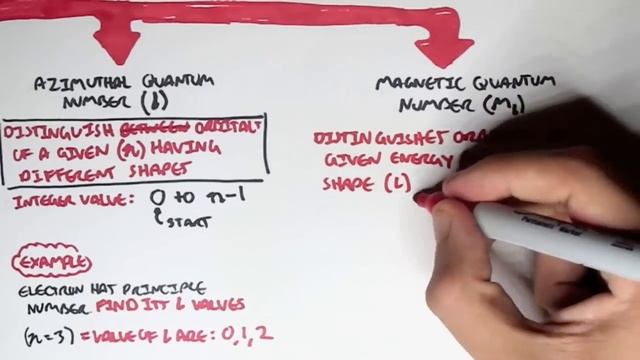 AZIMUTHAL QUANTUM
NUMBER (l)
DISTINGUISH BETWEEN ORBITALS
OF A GIVEN (n) HAVING
DIFFERENT SHAPES
INTEGER VALUE: 0 to n-1
START
EXAMPLE
ELECTRON HAS PRINCIPLE
NUMBER FIND ITS l VALUES
(n=3) = VALUE OF l ARE: 0,1,2
MAGNETIC QUANTUM
NUMBER (Ml)
DISTINGUISHES
GIVEN ENERGY
SHAPE (L)
Permanent Marker